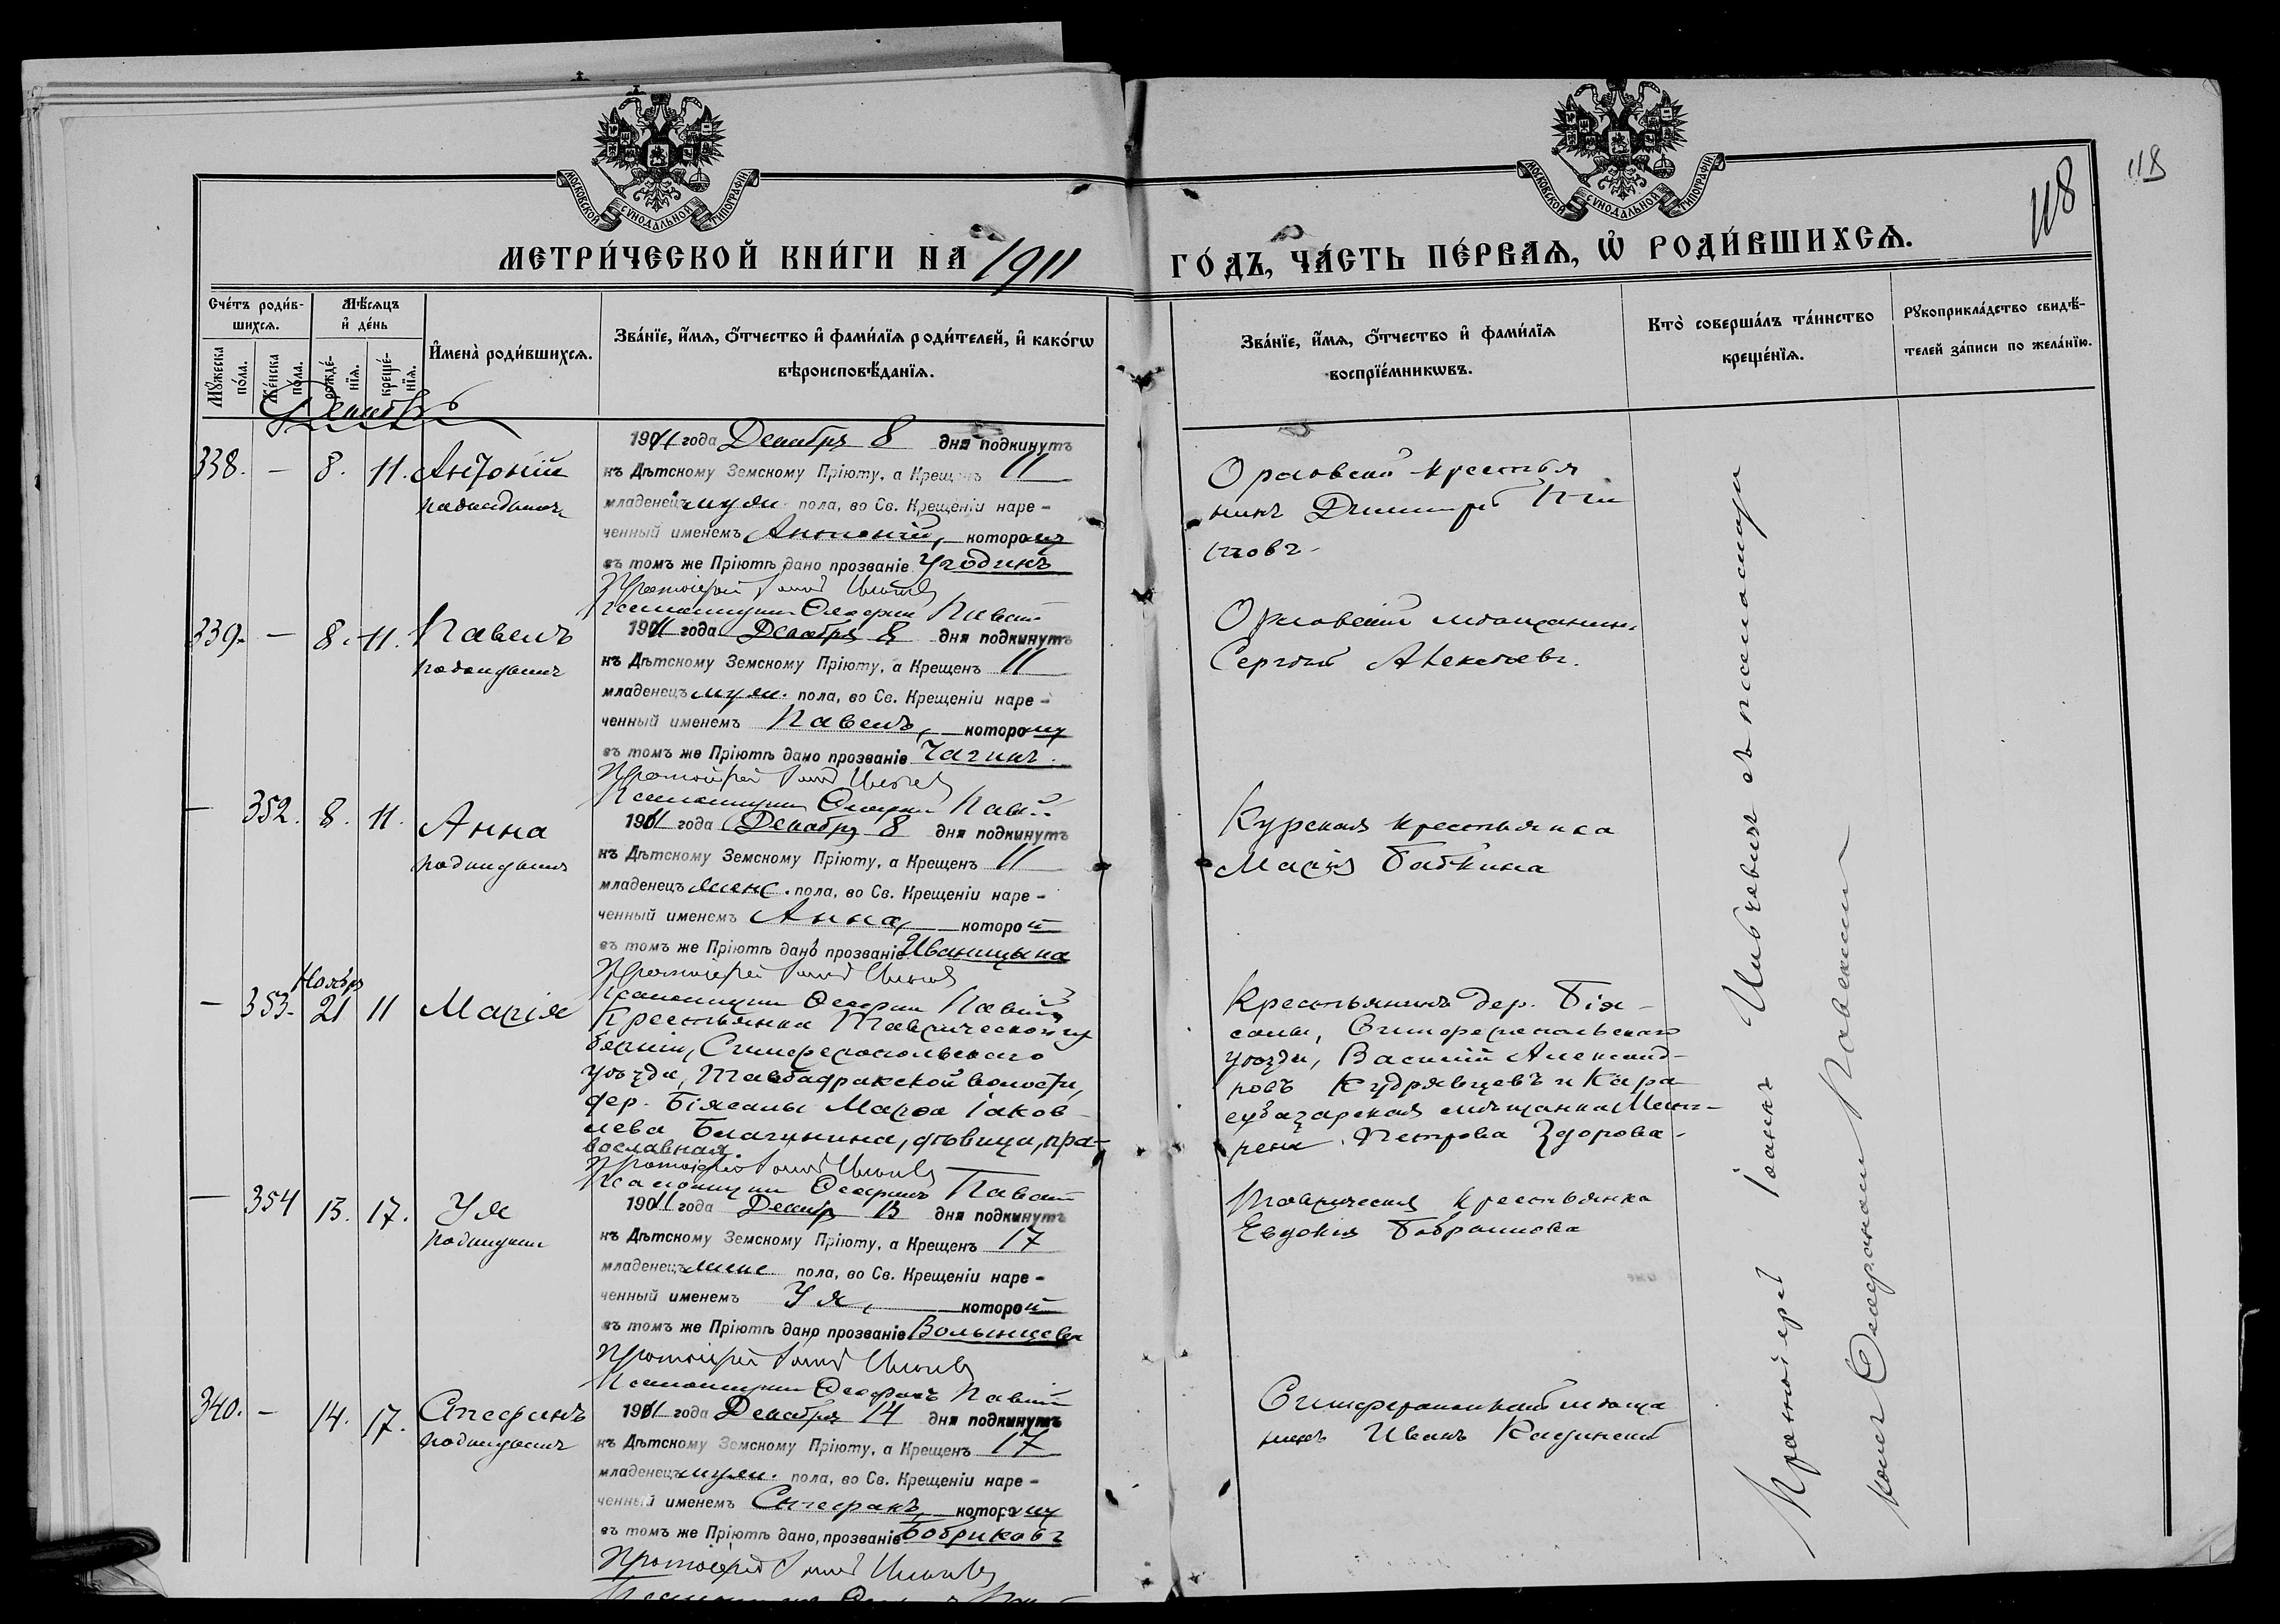 118
118
МОСКОВСКОЙ СѴНОДАЛЬНОЙ ТИПОГРАФІИ
МОСКОВСКОЙ СѴНОДАЛЬНОЙ ТИПОГРАФІИ
МЕТРИ́ЧЕСКОЙ КНИ́ГИ НА 1911 ГО́ДЪ, ЧА́СТЬ ПЕ́РВАѦ, Ѡ҆ РОДИ́ВШИХСѦ.
Сче́тъ роди́в-
шихсѧ.
Мꙋ́жеска по́ла.
Же́нска по́ла.
Мѣ́сѧцъ и҆ де́нь
рожде́-нїѧ.
креще́-нїѧ.
И҆мена̀ роди́вшихсѧ.
Зва́нїе, и҆́мѧ, ѻ҆́тчество и҆ фами́лїѧ роди́телей, и҆ како́гѡ
вѣроисповѣ́данїѧ.
Зва́нїе, и҆́мѧ, ѻ҆́тчество и҆ фами́лїѧ
воспрїе́мникѡвъ.
Кто̀ соверша́лъ та́инство
креще́нїѧ.
Рꙋкоприкла́дство свидѣ́-
телей за́писи по жела́нїю.
Декабрь
338. — 8. 11. Антоній
подкидышъ
1911 года Декабря 8 дня подкинутъ
къ Дѣтскому Земскому Пріюту, а Крещенъ 11
младенецъ муж. пола, во Св. Крещеніи наре-
ченный именемъ Антоній, которому
въ томъ же Пріютѣ дано прозваніе Угодинъ
Протоіерей
Псаломщикъ
Орловскій крестья
нинъ Димитрій
339. — 8. 11. Павелъ
подкидышъ
1911 года Декабря 8 дня подкинутъ
къ Дѣтскому Земскому Пріюту, а Крещенъ 11
младенецъ муж. пола, во Св. Крещеніи наре-
ченный именемъ Павелъ, которому
въ томъ же Пріютѣ дано прозваніе Чагинъ.
Протоіерей
Псаломщикъ
Орловскій мѣщанинъ
Сергѣй Алексѣевъ.
— 352. 8. 11. Анна
подкидышъ
1911 года Декабря 8 дня подкинутъ
къ Дѣтскому Земскому Пріюту, а Крещенъ 11
младенецъ женс. пола, во Св. Крещеніи наре-
ченный именемъ Анна, которой
въ томъ же Пріютѣ дано прозваніе Иваницына
Протоіерей
Псаломщикъ
Курская крестьянка
Марія Бабкина
Ноября
— 353. 21 11 Марія
Крестьянка Таврической гу
берніи, Симферопольскаго
уѣзда, Тавбадракской волости,
дер. Біясалы Марѳа Іаков-
лева Благинина, дѣвица, пра-
вославная.
Протоіерей
Псаломщикъ
Крестьянинъ дер. Бія-
салы, Симферопольскаго
уѣзда, Василій Александ-
ровъ Кудрявцевъ и Кара
субазарская мѣщанка
Петрова Здорова.
— 354 13. 17. Уя
подкидышъ
1911 года Декабр 13 дня подкинутъ
къ Дѣтскому Земскому Пріюту, а Крещенъ 17
младенецъ женс пола, во Св. Крещеніи наре-
ченный именемъ Уя, которой
въ томъ же Пріютѣ дано прозваніе Волынцева
Протоіерей
Псаломщикъ
Таврическая крестьянка
Евдокія
340. — 14. 17. Стефанъ
подкидышъ
1911 года Декабря 14 дня подкинутъ
къ Дѣтскому Земскому Пріюту, а Крещенъ 17
младенецъ муж. пола, во Св. Крещеніи наре-
ченный именемъ Стефанъ, которому
въ томъ же Пріютѣ дано прозваніе Бобриковъ
Протоіерей
Симферопольскій мѣща
нинъ Иванъ
Протоіерей Іоаннъ съ псаломщи
комъ